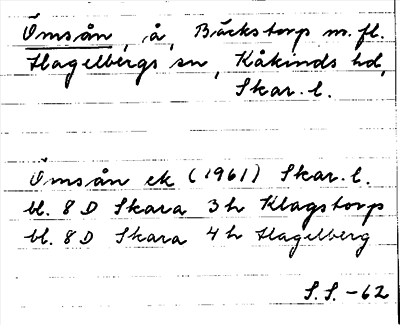 Ömsån, å, Bäckstorp m.fl.
Hagelbergs sn, Kåkinds hd,
Skar. l.
Ömsån ek (1961) Skar. l.
bl. 8 D Skara 3 h Klagstorp
bl. 8 D Skara 4 h Hagelberg
S.S. -62